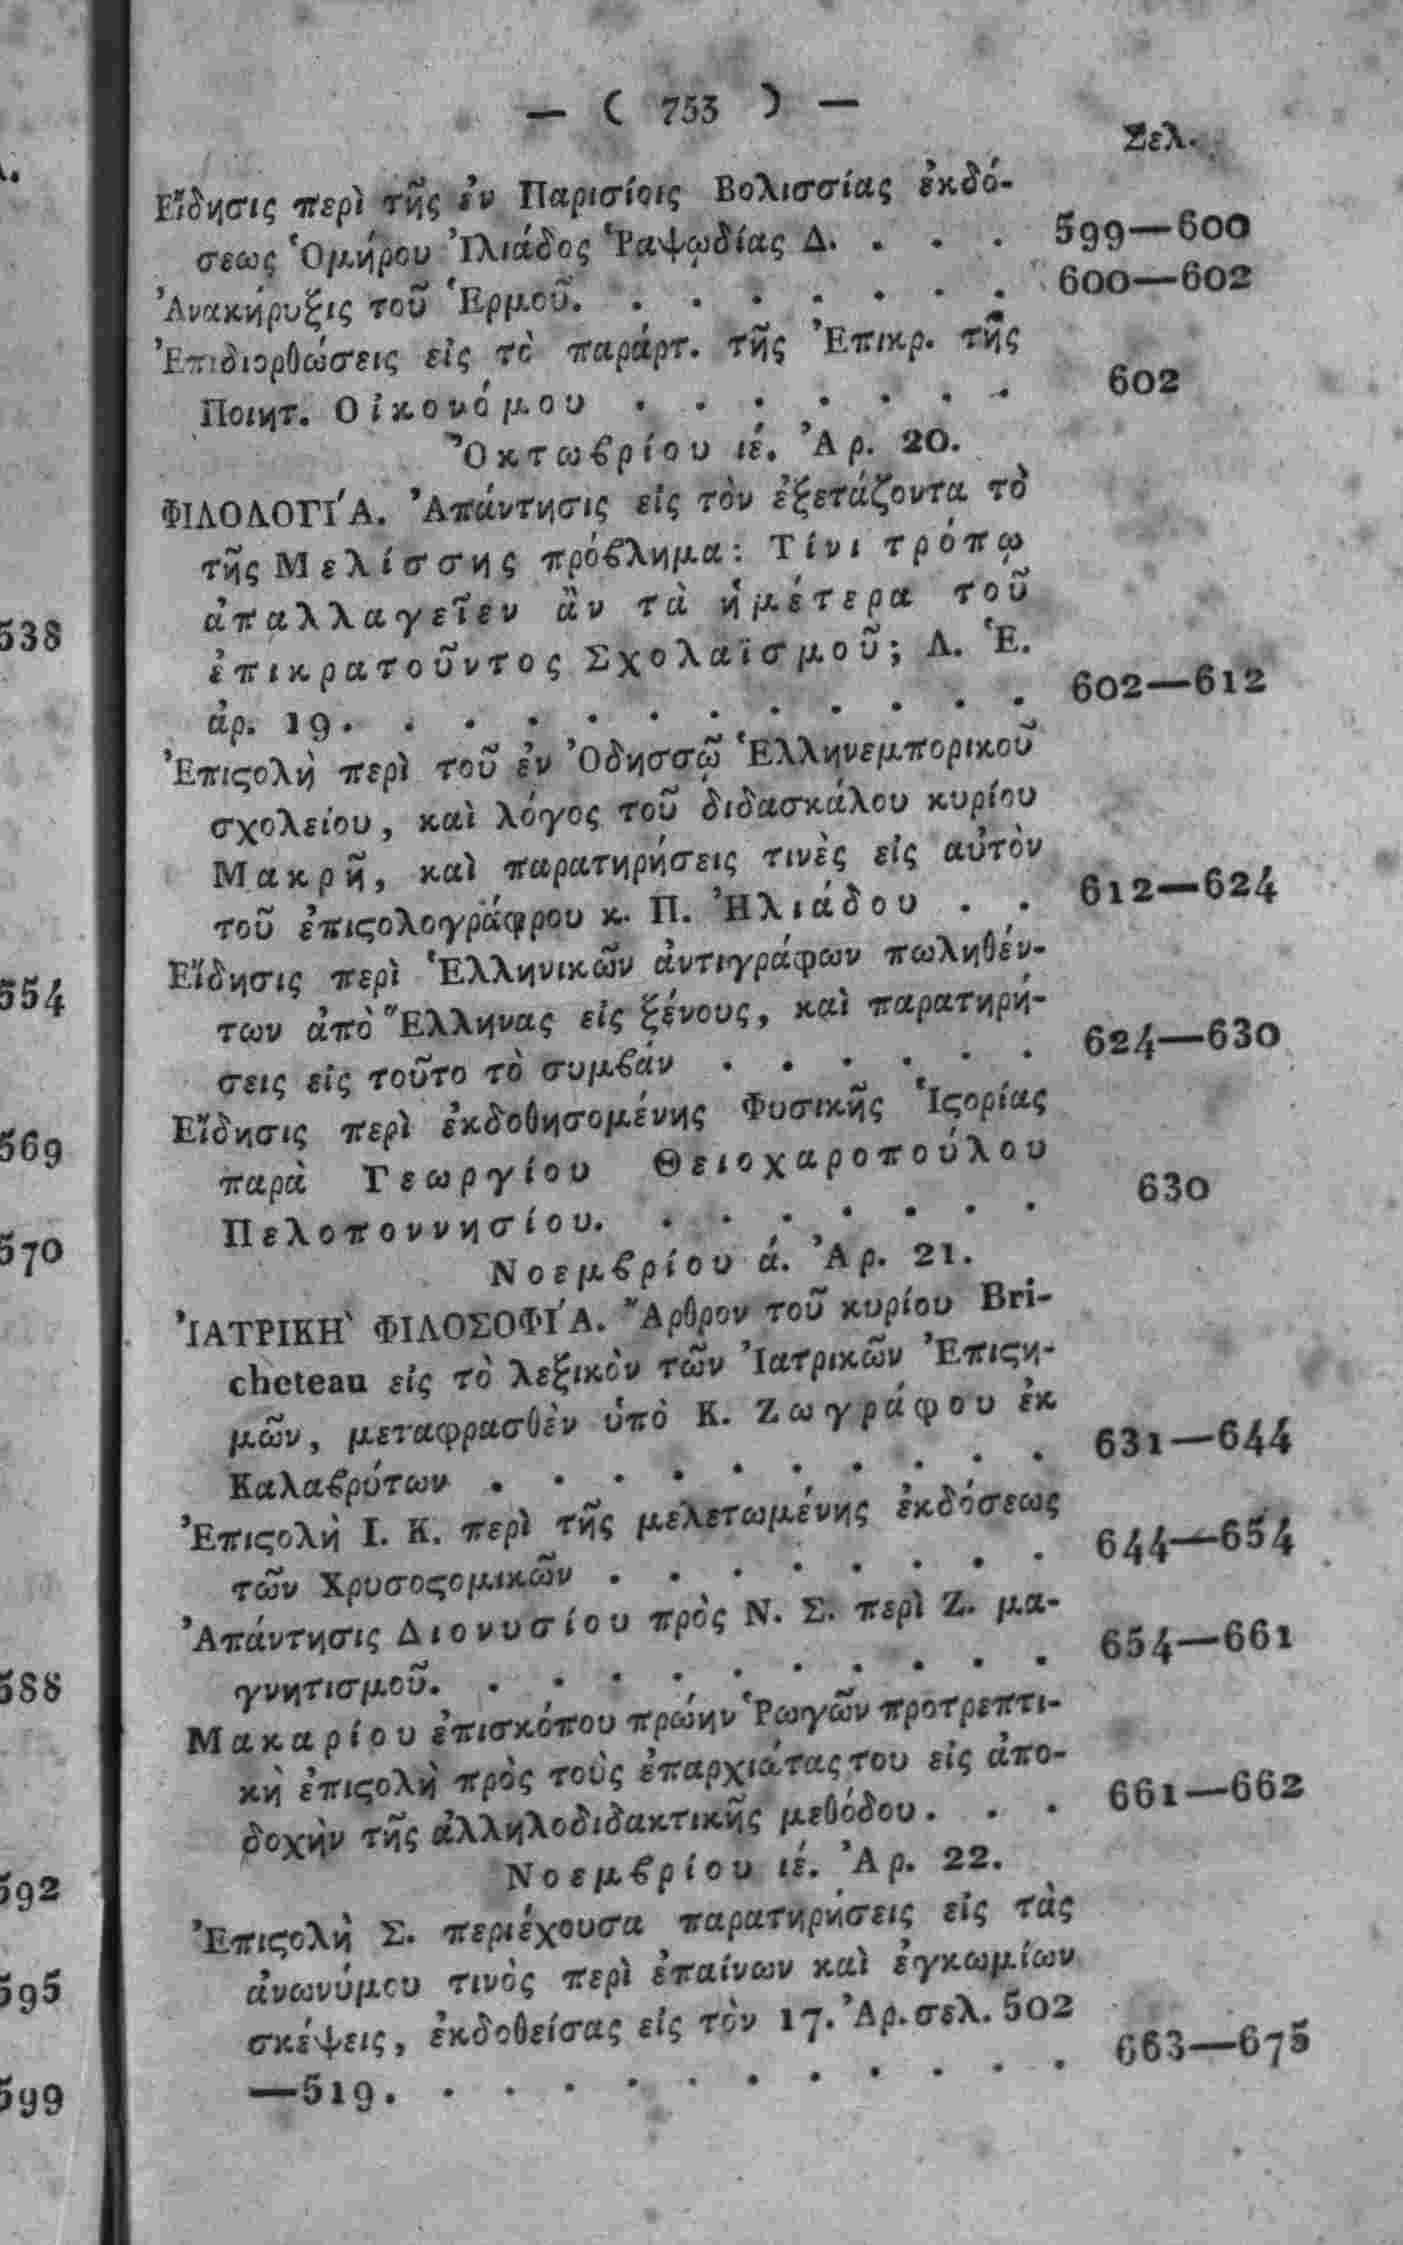 — ( 753 ) —
Σελ.
Εἴδησις περὶ τῆς ἐν Παρισίοις Βολισσίας ἐκδό-
σεως Ὁμήρου Ἰλιάδος Ῥαψῳδίας Δ. . . . 599—600
Ἀνακήρυξις τοῦ Ἑρμοῦ. . . . . . . . 600—602
Ἐπιδιορθώσεις εἰς τὸ παράρτ. τῆς Ἐπικρ. τῆς
Ποιητ. Οἰκονόμου . . . . . . . 602
Ὀκτωϐρίου ιέ. Ἀρ. 20.
ΦΙΛΟΛΟΓΙ´Α. Ἀπάντησις εἰς τὸν ἐξετάζοντα τὸ
τῆς Μελίσσης πρόϐλημα: Τίνι τρόπῳ
ἀπαλλαγεῖεν ἂν τὰ ἡμέτερα τοῦ
ἐπικρατοῦντος Σχολαϊσμοῦ; Λ. Ἑ.
ἀρ. 19. . . . . . . . . . . . 602—612
Ἐπιϛολὴ περὶ τοῦ ἐν Ὀδησσῷ Ἑλληνεμπορικοῦ
σχολείου, καὶ λόγος τοῦ διδασκάλου κυρίου
Μακρῆ, καὶ παρατηρήσεις τινὲς εἰς αὐτὸν
τοῦ ἐπιϛολογράφρου κ. Π. Ἠλιάδου . . 612—624
Εἴδησις περὶ Ἑλληνικῶν ἀντιγράφων πωληθέν-
των ἀπὸ Ἕλληνας εἰς ξένους, καὶ παρατηρή-
σεις εἰς τοῦτο τὸ συμϐάν . . . . . . 624—630
Εἴδησις περὶ ἐκδοθησομένης Φυσικῆς Ἱϛορίας
παρὰ Γεωργίου Θειοχαροπούλου
Πελοποννησίου. . . . . . . . 630
Νοεμϐρίου ά. Ἀρ. 21.
ἸΑΤΡΙΚΗ` ΦΙΛΟΣΟΦΙ´Α. Ἄρθρον τοῦ κυρίου Bri-
cheteau εἰς τὸ λεξικὸν τῶν Ἰατρικῶν Ἐπιϛη-
μῶν, μεταφρασθὲν ὑπὸ Κ. Ζωγράφου ἐκ
Καλαϐρύτων . . . . . . . . . . 631—644
Ἐπιϛολὴ Ι. Κ. περὶ τῆς μελετωμένης ἐκδόσεως
τῶν Χρυσοϛομικῶν . . . . . . . . 644—654
Ἀπάντησις Διονυσίου πρὸς Ν. Σ. περὶ Ζ. μα-
γνητισμοῦ. . . . . . . . . . . 654—661
Μακαρίου ἐπισκόπου πρώην Ῥωγῶν προτρεπτι-
κὴ ἐπιϛολὴ πρὸς τοὺς ἐπαρχιάτας του εἰς ἀπο-
δοχὴν τῆς ἀλληλοδιδακτικῆς μεθόδου. . . 661—662
Νοεμϐρίου ιέ. Ἀρ. 22.
Ἐπιϛολὴ Σ. περιέχουσα παρατηρήσεις εἰς τὰς
ἀνωνύμου τινὸς περὶ ἐπαίνων καὶ ἐγκωμίων
σκέψεις, ἐκδοθείσας εἰς τὸν 17. Ἀρ. σελ. 502
—519. . . . . . . . . . . . 663—675
538
554
569
570
588
592
595
599